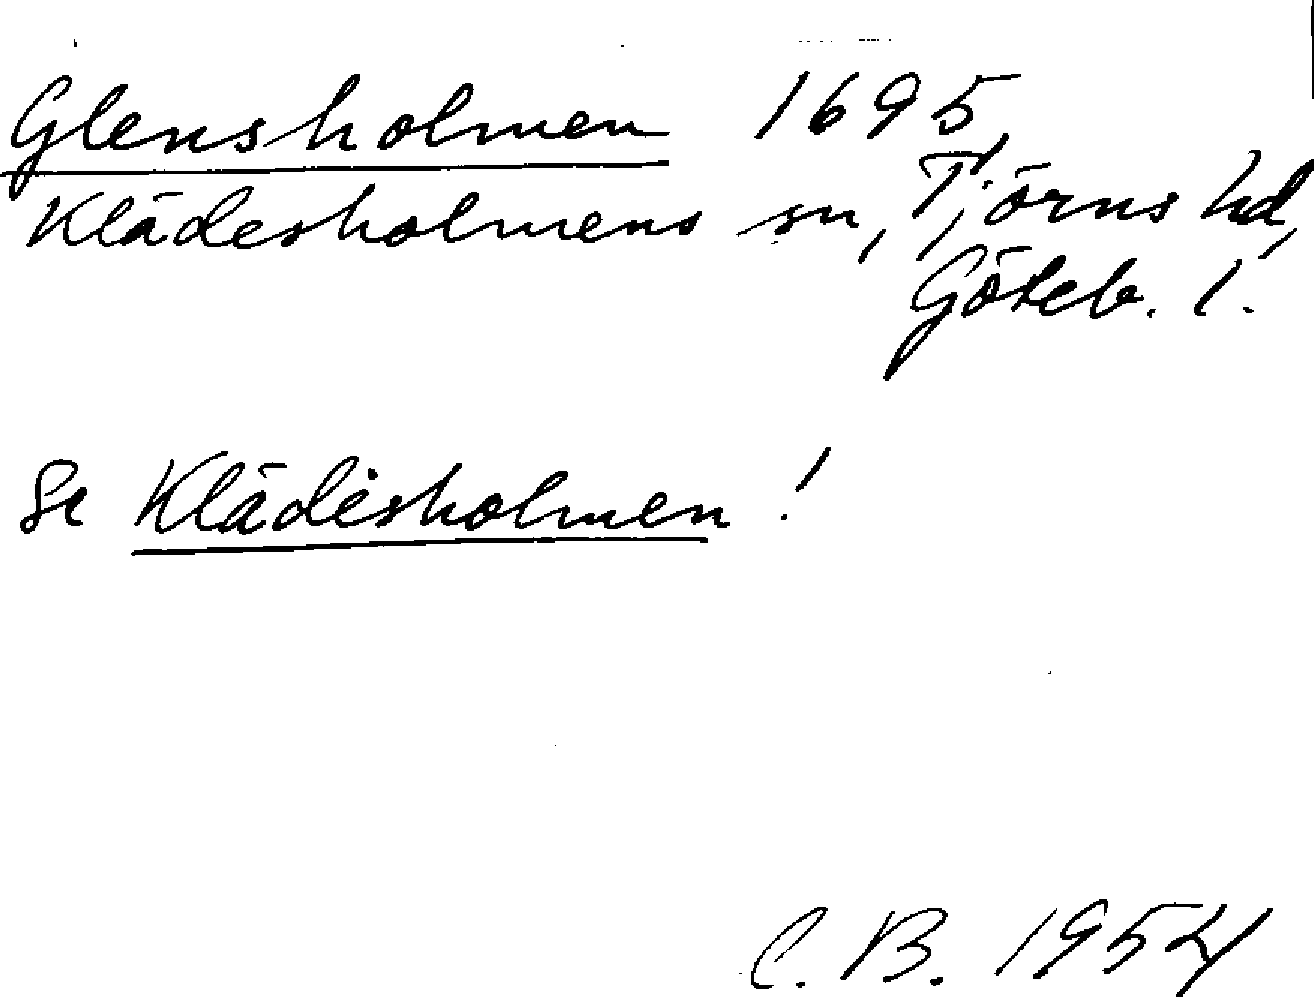 Glensholmen 1695,
Klädesholmens sn, Tjörns hd,
Göteb. l.
Se Klädesholmen!
C. B. 1954